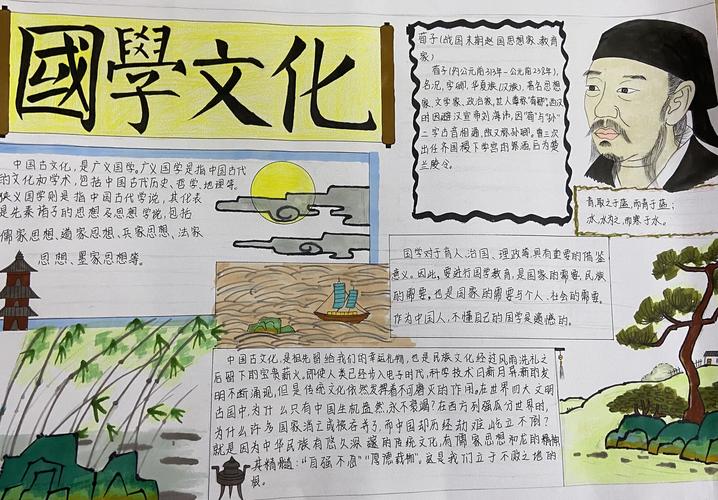 國學文化
中国古文化,是广义国学。广义国学是指中国古代
的文化和学术,包括中国古代历史、哲学、地理等。
狭义国学则是指中国古代学说,其代表
是先秦诸子的思想及思想学说,包括
儒家思想、道家思想、兵家思想、法家
思想、墨家思想等。
荀子(战国末期赵国思想家、教育
家)
荀子(约公元前313年-公元前238年),
名况,字卿,华夏族(汉族),著名思想
家、文学家、政治家,世人尊称"荀卿"。西汉
时因避汉宣帝刘询讳,因"荀"与"孙"
二字古音相通,故又称孙卿。曾三次
出任齐国稷下学宫的祭酒,后为楚
兰陵令。
青,取之于蓝,而青于蓝;
冰,水为之,而寒于水。
国学对于育人、治国、理政等,具有重要的借鉴
意义。因此,要进行国学教育,是国家的需要,民族
的需要,也是国家的需要与个人、社会的需要。
作为中国人,不懂自己的国学是遗憾的。
中国古文化,是祖先留给我们的幸运礼物,也是民族文化经过风雨洗礼之
后留下的宝贵薪火。即使人类已经步入电子时代,科学技术日新月异新的发
明不断涌现,但是传统文化依然发挥着不可磨灭的作用。在世界四大文明
古国中,为什么只有中国生机盎然,永不衰竭?在西方列强瓜分世界时,
为什么许多国家消亡或被吞并了,而中国却历经劫难屹立不倒?
就是因为中华民族有悠久深邃的传统文化,有儒家思想和龙的精神
其精髓:"自强不息""厚德载物"。这是我们立于不败之地的
根。